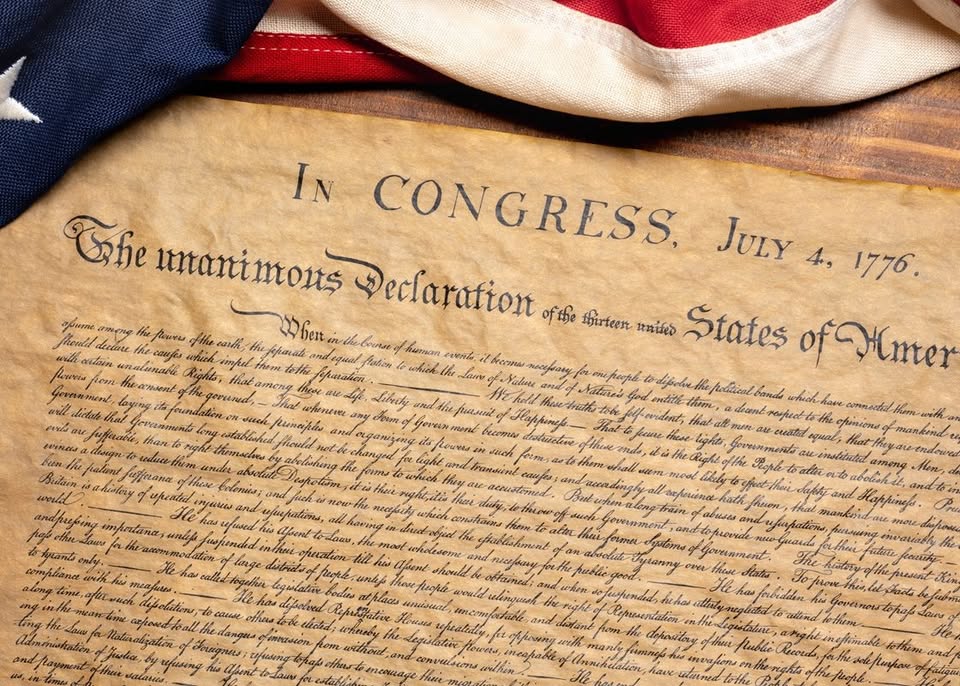 In CONGRESS, July 4, 1776.
The unanimous Declaration of the thirteen united States of Amer
When in the Course of human events it becomes necessary for one people to dissolve the political bands which have connected them with
assume among the powers of the earth, the separate and equal station to which the Laws of Nature and of Nature's God entitle them, a decent respect to the opinions of mankind
should declare the causes which impel them to the separation. — We hold these truths to be self-evident, that all men are created equal, that they are endowed
with certain unalienable Rights, that among these are Life, Liberty and the pursuit of Happiness — That to secure these rights, Governments are instituted among Men,
powers from the consent of the governed, — That whenever any Form of Government becomes destructive of these ends, it is the Right of the People to alter or to abolish it, and to
Government, laying its foundation on such principles and organizing its powers in such form, as to them shall seem most likely to effect their Safety and Happiness.
will dictate that Governments long established should not be changed for light and transient causes; and accordingly all experience hath shewn, that mankind are more
evils are sufferable, than to right themselves by abolishing the forms to which they are accustomed. But when a long train of abuses and usurpations, pursuing invariably the
evinces a design to reduce them under absolute Despotism, it is their right, it is their duty, to throw off such Government, and to provide new Guards for their future security. —
been the patient sufferance of these Colonies; and such is now the necessity which constrains them to alter their former Systems of Government. The history of the present King
Britain is a history of repeated injuries and usurpations, all having in direct object the establishment of an absolute Tyranny over these States. To prove this, let Facts be
world. — He has refused his Assent to Laws, the most wholesome and necessary for the public good. — He has forbidden his Governors to pass Laws of
and pressing importance, unless suspended in their operation till his Assent should be obtained; and when so suspended, he has utterly neglected to attend to them. — He
pass other Laws for the accommodation of large districts of people, unless those people would relinquish the right of Representation in the Legislature, a right inestimable to them and
to tyrants only. — He has called together legislative bodies at places unusual, uncomfortable, and distant from the depository of their public Records, for the sole purpose of
compliance with his measures. — He has dissolved Representative Houses repeatedly, for opposing with manly firmness his invasions on the rights of the people.
long time, after such dissolutions, to cause others to be elected; whereby the Legislative powers, incapable of Annihilation, have returned to the People
ing in the mean time exposed to all the dangers of invasion from without, and convulsions within. — He has
ting the Laws for Naturalization of Foreigners; refusing to pass others to encourage their
Administration of Justice, by refusing his Assent to Laws for
and payment of their salaries. —
us, in times of